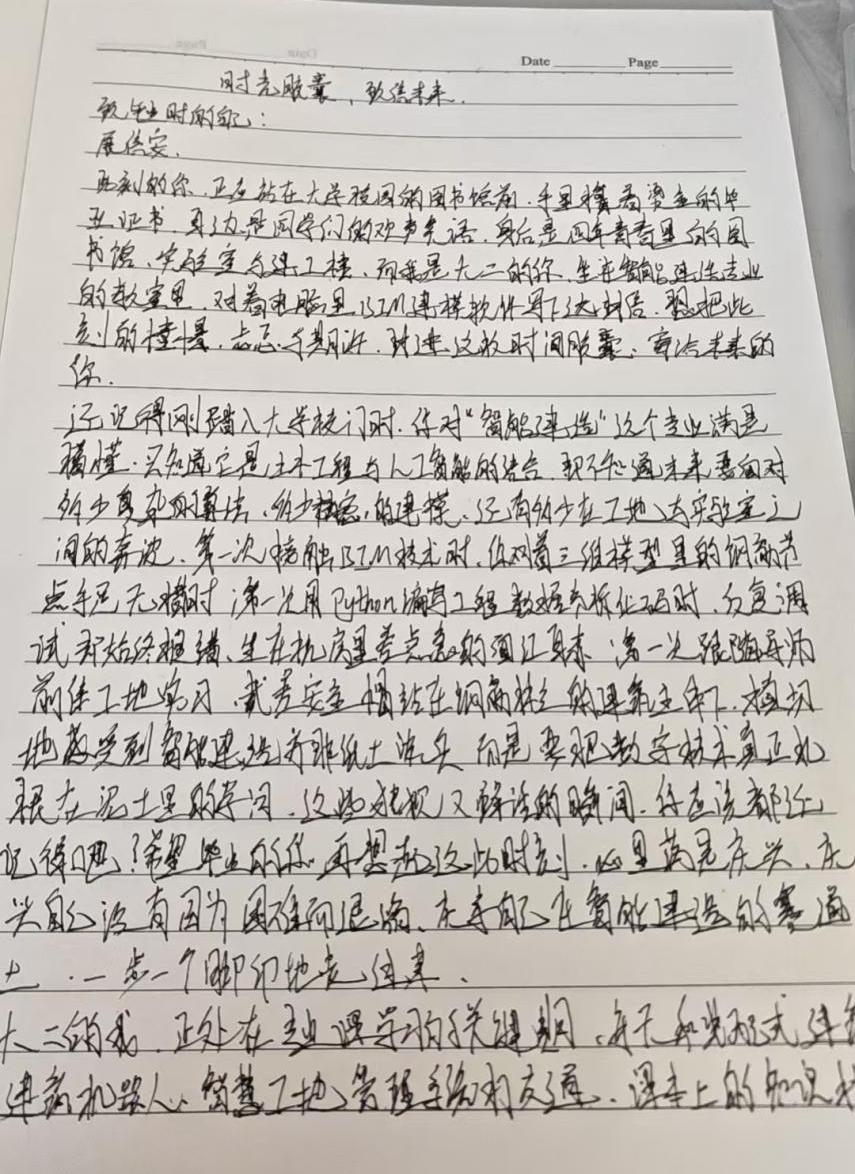 Date Page
时光胶囊，致信未来.
致毕业时的自己：
展信安.
此刻的你.正在站在大学校园的图书馆前.手里攥着烫金的毕
业证书.身边是同学们的欢声笑语.身后是四年青春里的图
书馆、实验室与建工楼.而我是大二的你.坐在智能建造专业
的教室里.对着电脑里BIM建模软件写下这封信.想把此
刻的憧憬.忐忑与期许.封进这枚时间胶囊.寄给未来的
你.
还记得刚踏入大学校门时.你对“智能建造”这个专业满是
懵懂.只知道它是土木工程与人工智能的结合.却不知道未来要面对
多少复杂的算法、多少精密的建模、还有多少在工地与实验室之
间的奔波.第一次接触BIM技术时.你对着三维模型里的钢筋节
点手足无措时；第一次用Python编写工程数据分析代码时.反复调
试却始终报错、坐在机房里差点急的眼红耳赤；第一次跟随导师
前往工地实习.戴着安全帽站在钢筋林立的建筑主体下.真切
地感受到智能建造并非纸上谈兵而是要把数字技术真正扎
根在泥土里的学问.这些狼狈又鲜活的瞬间.你应该都还
记得吧？希望毕业的你再想起这些时刻.心里满是庆幸.庆
幸自己没有因为困难而退缩、庆幸自己在智能建造的赛道
上.一步一个脚印地走过来.
大二的我.正处在专业课学习的关键期.每天和装配式建
建筑机器人、智慧工地管理系统打交道.课本上的知识